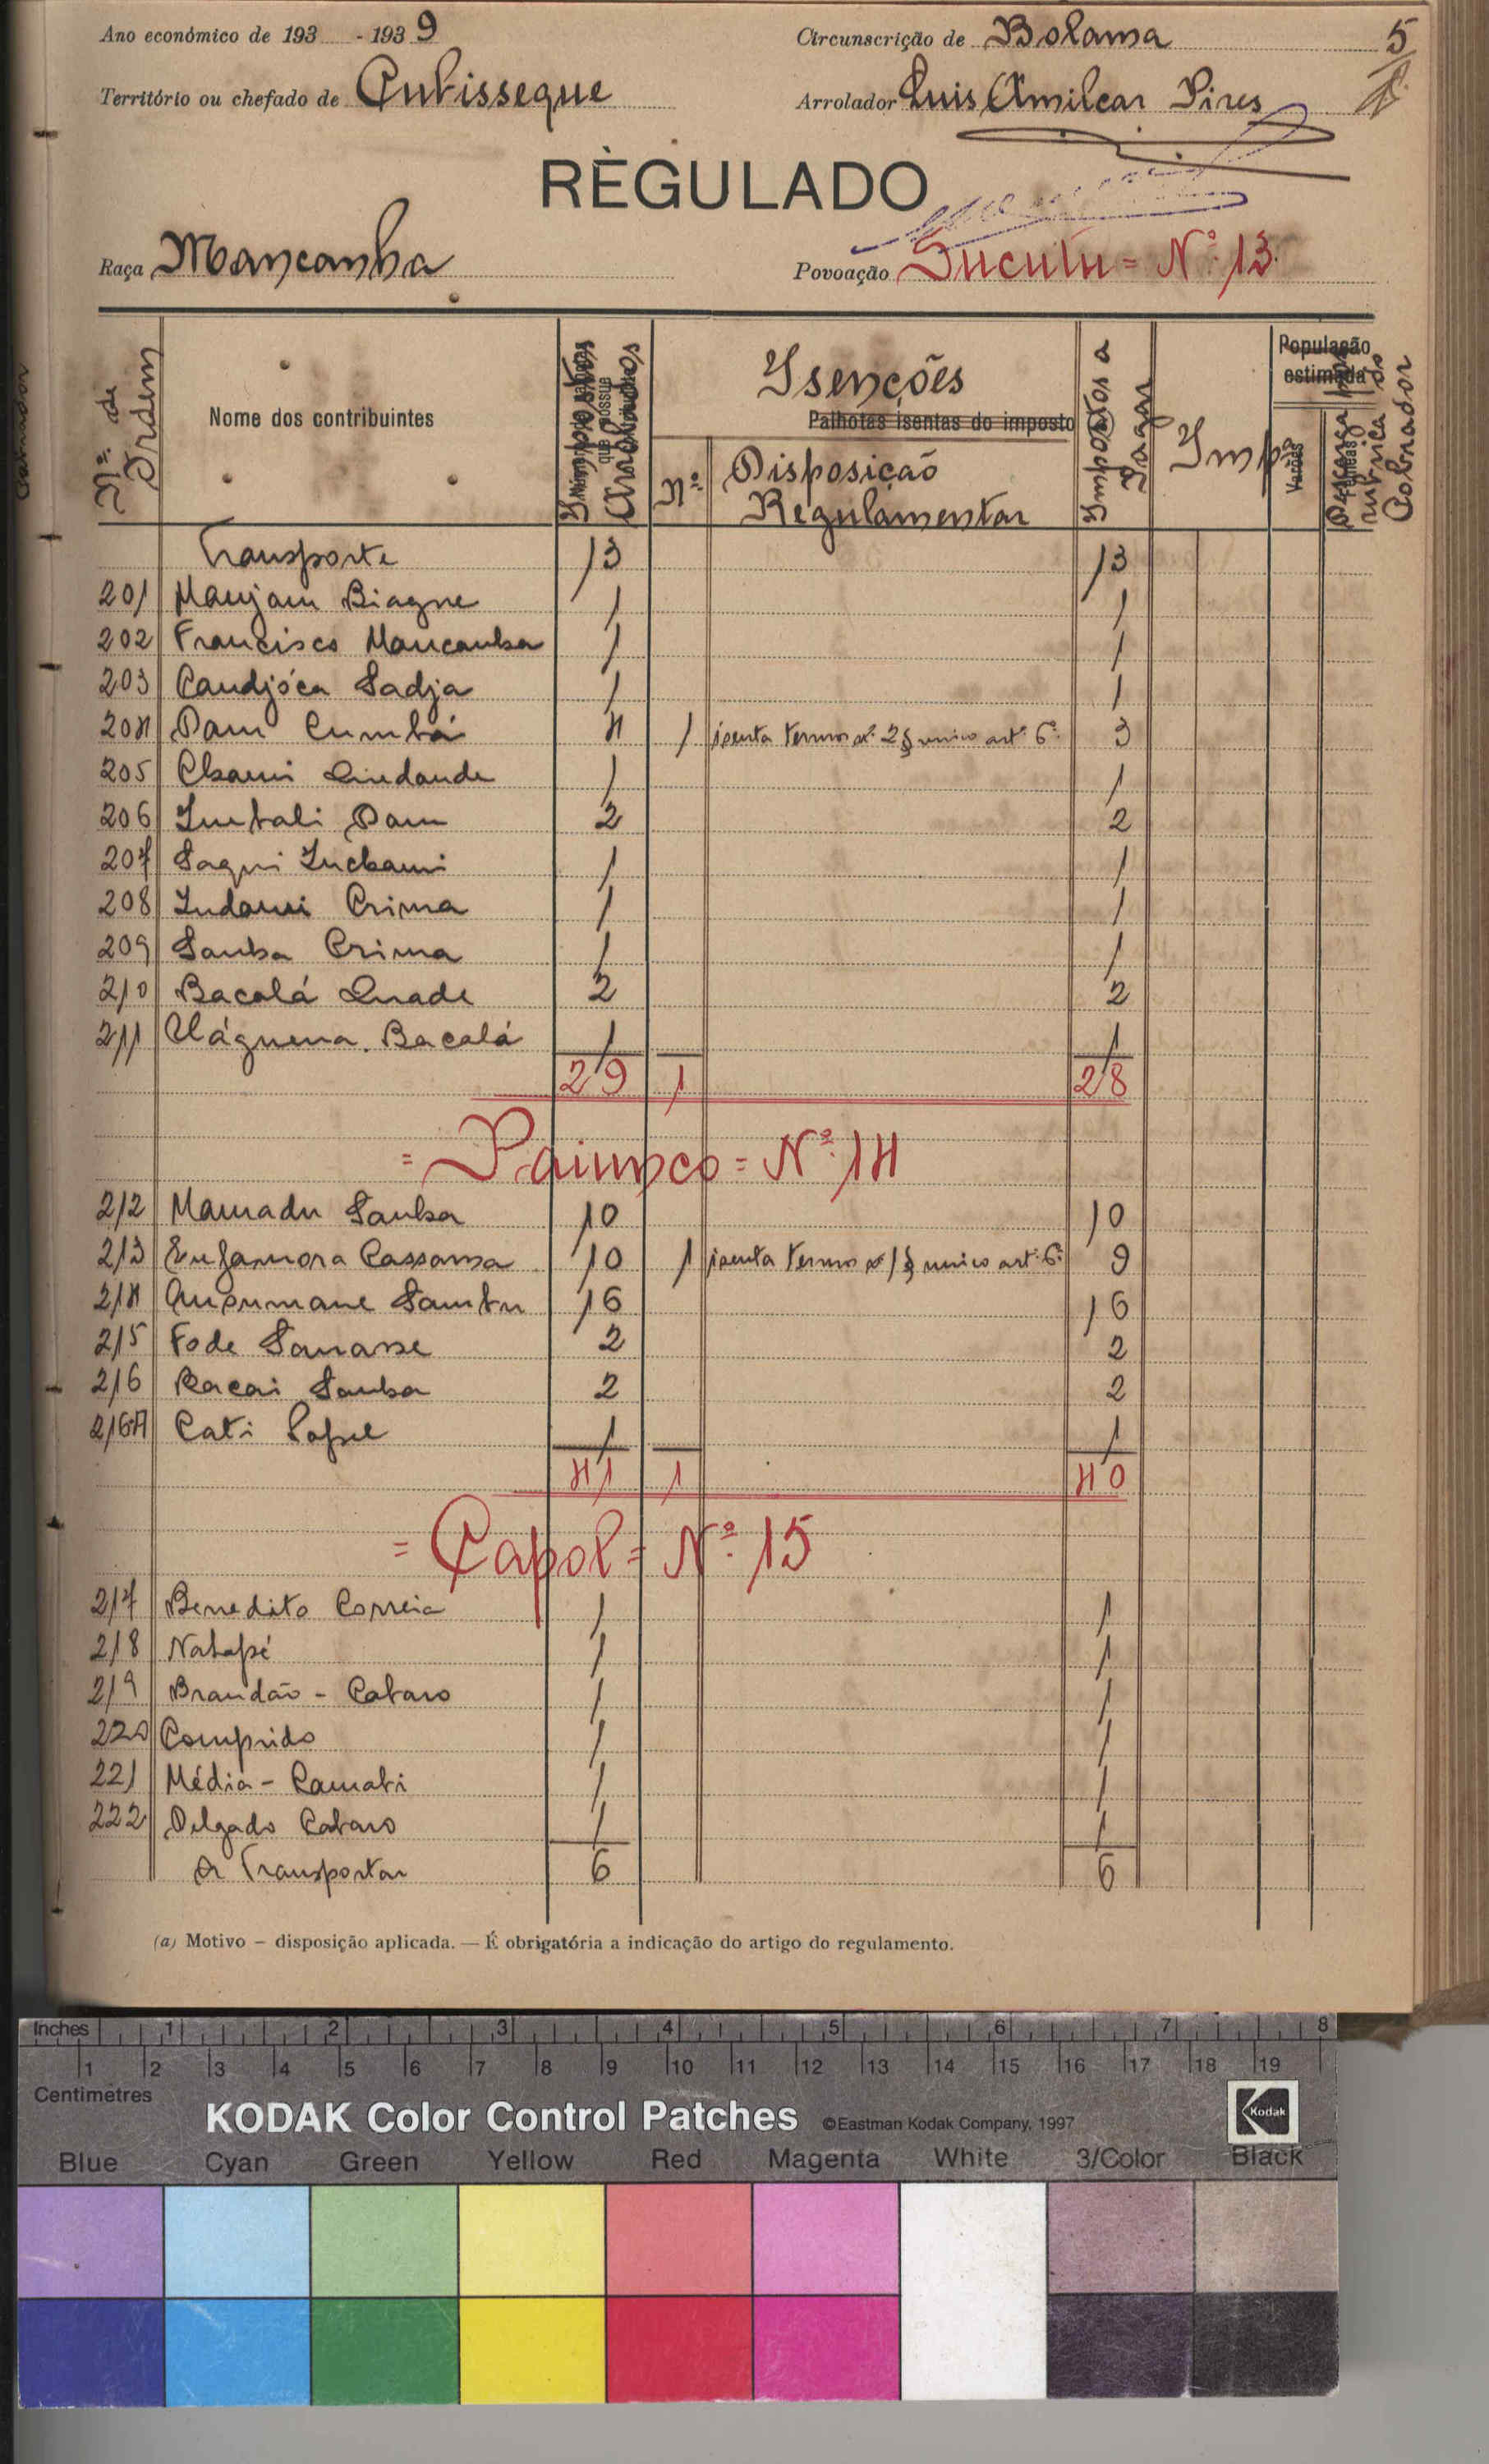 Ano económico de 193 - 1939 Circunscrição de Bolama 5
Território ou chefado de Cubisseque Arrolador Luis Amilcar Pires
RÈGULADO
Raça Mancanha Povoação Sucutu = Nº. 13
Nº. de Ordem
Nome dos contribuintes
Impostos Arrolados
que possue
Isenções
Palhotas isentas do imposto
Nº. Disposição Regulamentar
Impostos a Pagar
Impº
População estimada
Varões
rubrica do Cobrador
Transporte 13 13
201 Manjam Biagne 1 1
202 Francisco Mancanha 1 1
203 Candjóca Sadja 1 1
204 Dam Cumbá 4 1 isenta termos nº 2 § unico artº. 6º. 3
205 Chami Quidande 1 1
206 Imbali Dam 2 2
207 Sagui Inchami 1 1
208 Indami Crima 1 1
209 Samba Crima 1 1
210 Bacalá Quade 2 2
211 Uáguena Bacalá 1 1
29 1 28
= Paiunco = Nº. 14
212 Mamadu Samba 10 10
213 Enfamora Cassama 10 1 isenta termos nº 1 § unico artº. 6º. 9
214 Ansumane Sambu 16 16
215 Fode Sanasse 2 2
216 Bacai Samba 2 2
216A Cati Papel 1 1
41 1 40
= Capol = Nº. 15
217 Benedito Correia 1 1
218 Natapé 1 1
219 Brandão - Cataro 1 1
220 Comprido 1 1
221 Média - Camati 1 1
222 Delgado Cataro 1 1
A Transportar 6 6
(a) Motivo – disposição aplicada. — É obrigatória a indicação do artigo do regulamento.
Inches 1 2 3 4 5 6 7 8
1 2 3 4 5 6 7 8 9 10 11 12 13 14 15 16 17 18 19
Centimetres
KODAK Color Control Patches ©Eastman Kodak Company, 1997 Kodak
Blue Cyan Green Yellow Red Magenta White 3/Color Black